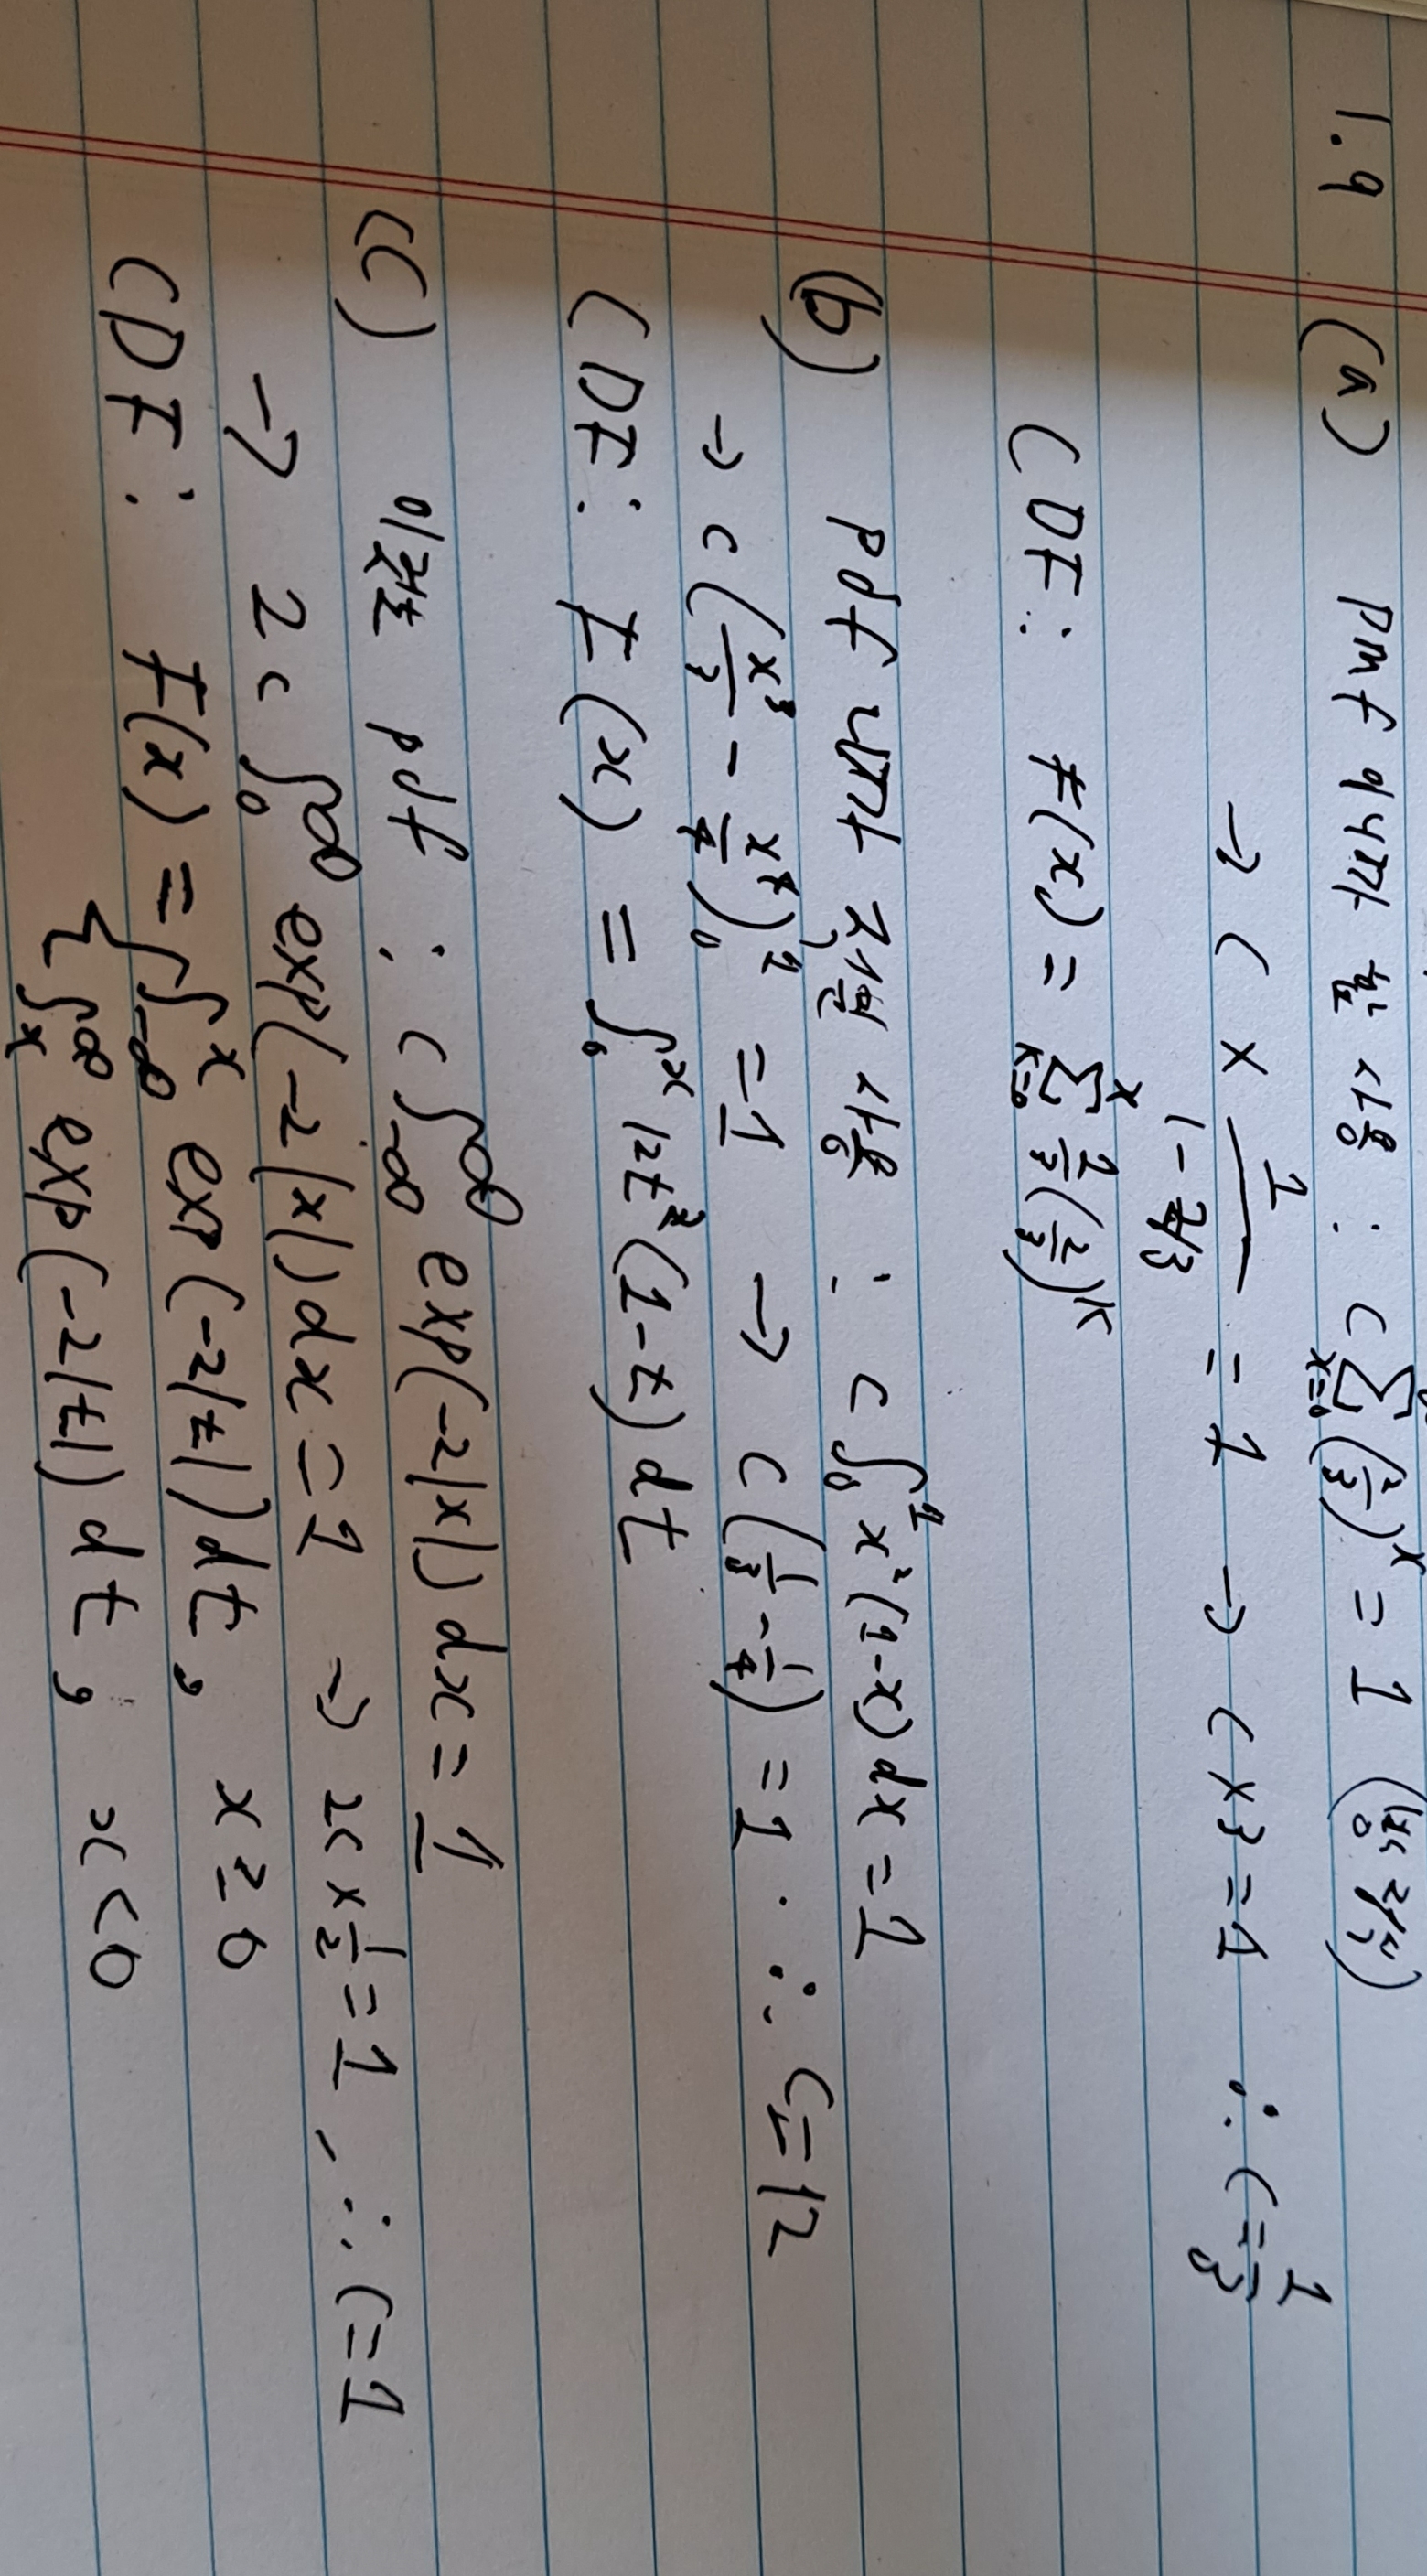 1.9 (a) pmf 이니까 합 사용 : c∑_{x=0}^{∞} (2/3)^x = 1
→ c × 1/(1 - 2/3) = 1 → c × 3 = 1 ∴ c = 1/3
CDF : F(x) = ∑_{k=0}^{x} 1/3 (2/3)^k
(b) pdf 니까 적분 사용 : c∫_0^1 x²(1-x) dx = 1
→ c (x³/3 - x⁴/4)_0^1 = 1 → c (1/3 - 1/4) = 1 . ∴ c = 12
CDF : F(x) = ∫_0^x 12t²(1-t) dt
(c) 이것도 pdf : c∫_{-∞}^{∞} exp(-2|x|) dx = 1
→ 2c ∫_0^∞ exp(-2|x|) dx = 1 → 2c × 1/2 = 1 , ∴ c = 1
CDF : F(x) = { ∫_{-∞}^x exp(-2|t|) dt , x ≥ 0
∫_x^∞ exp(-2|t|) dt , x < 0